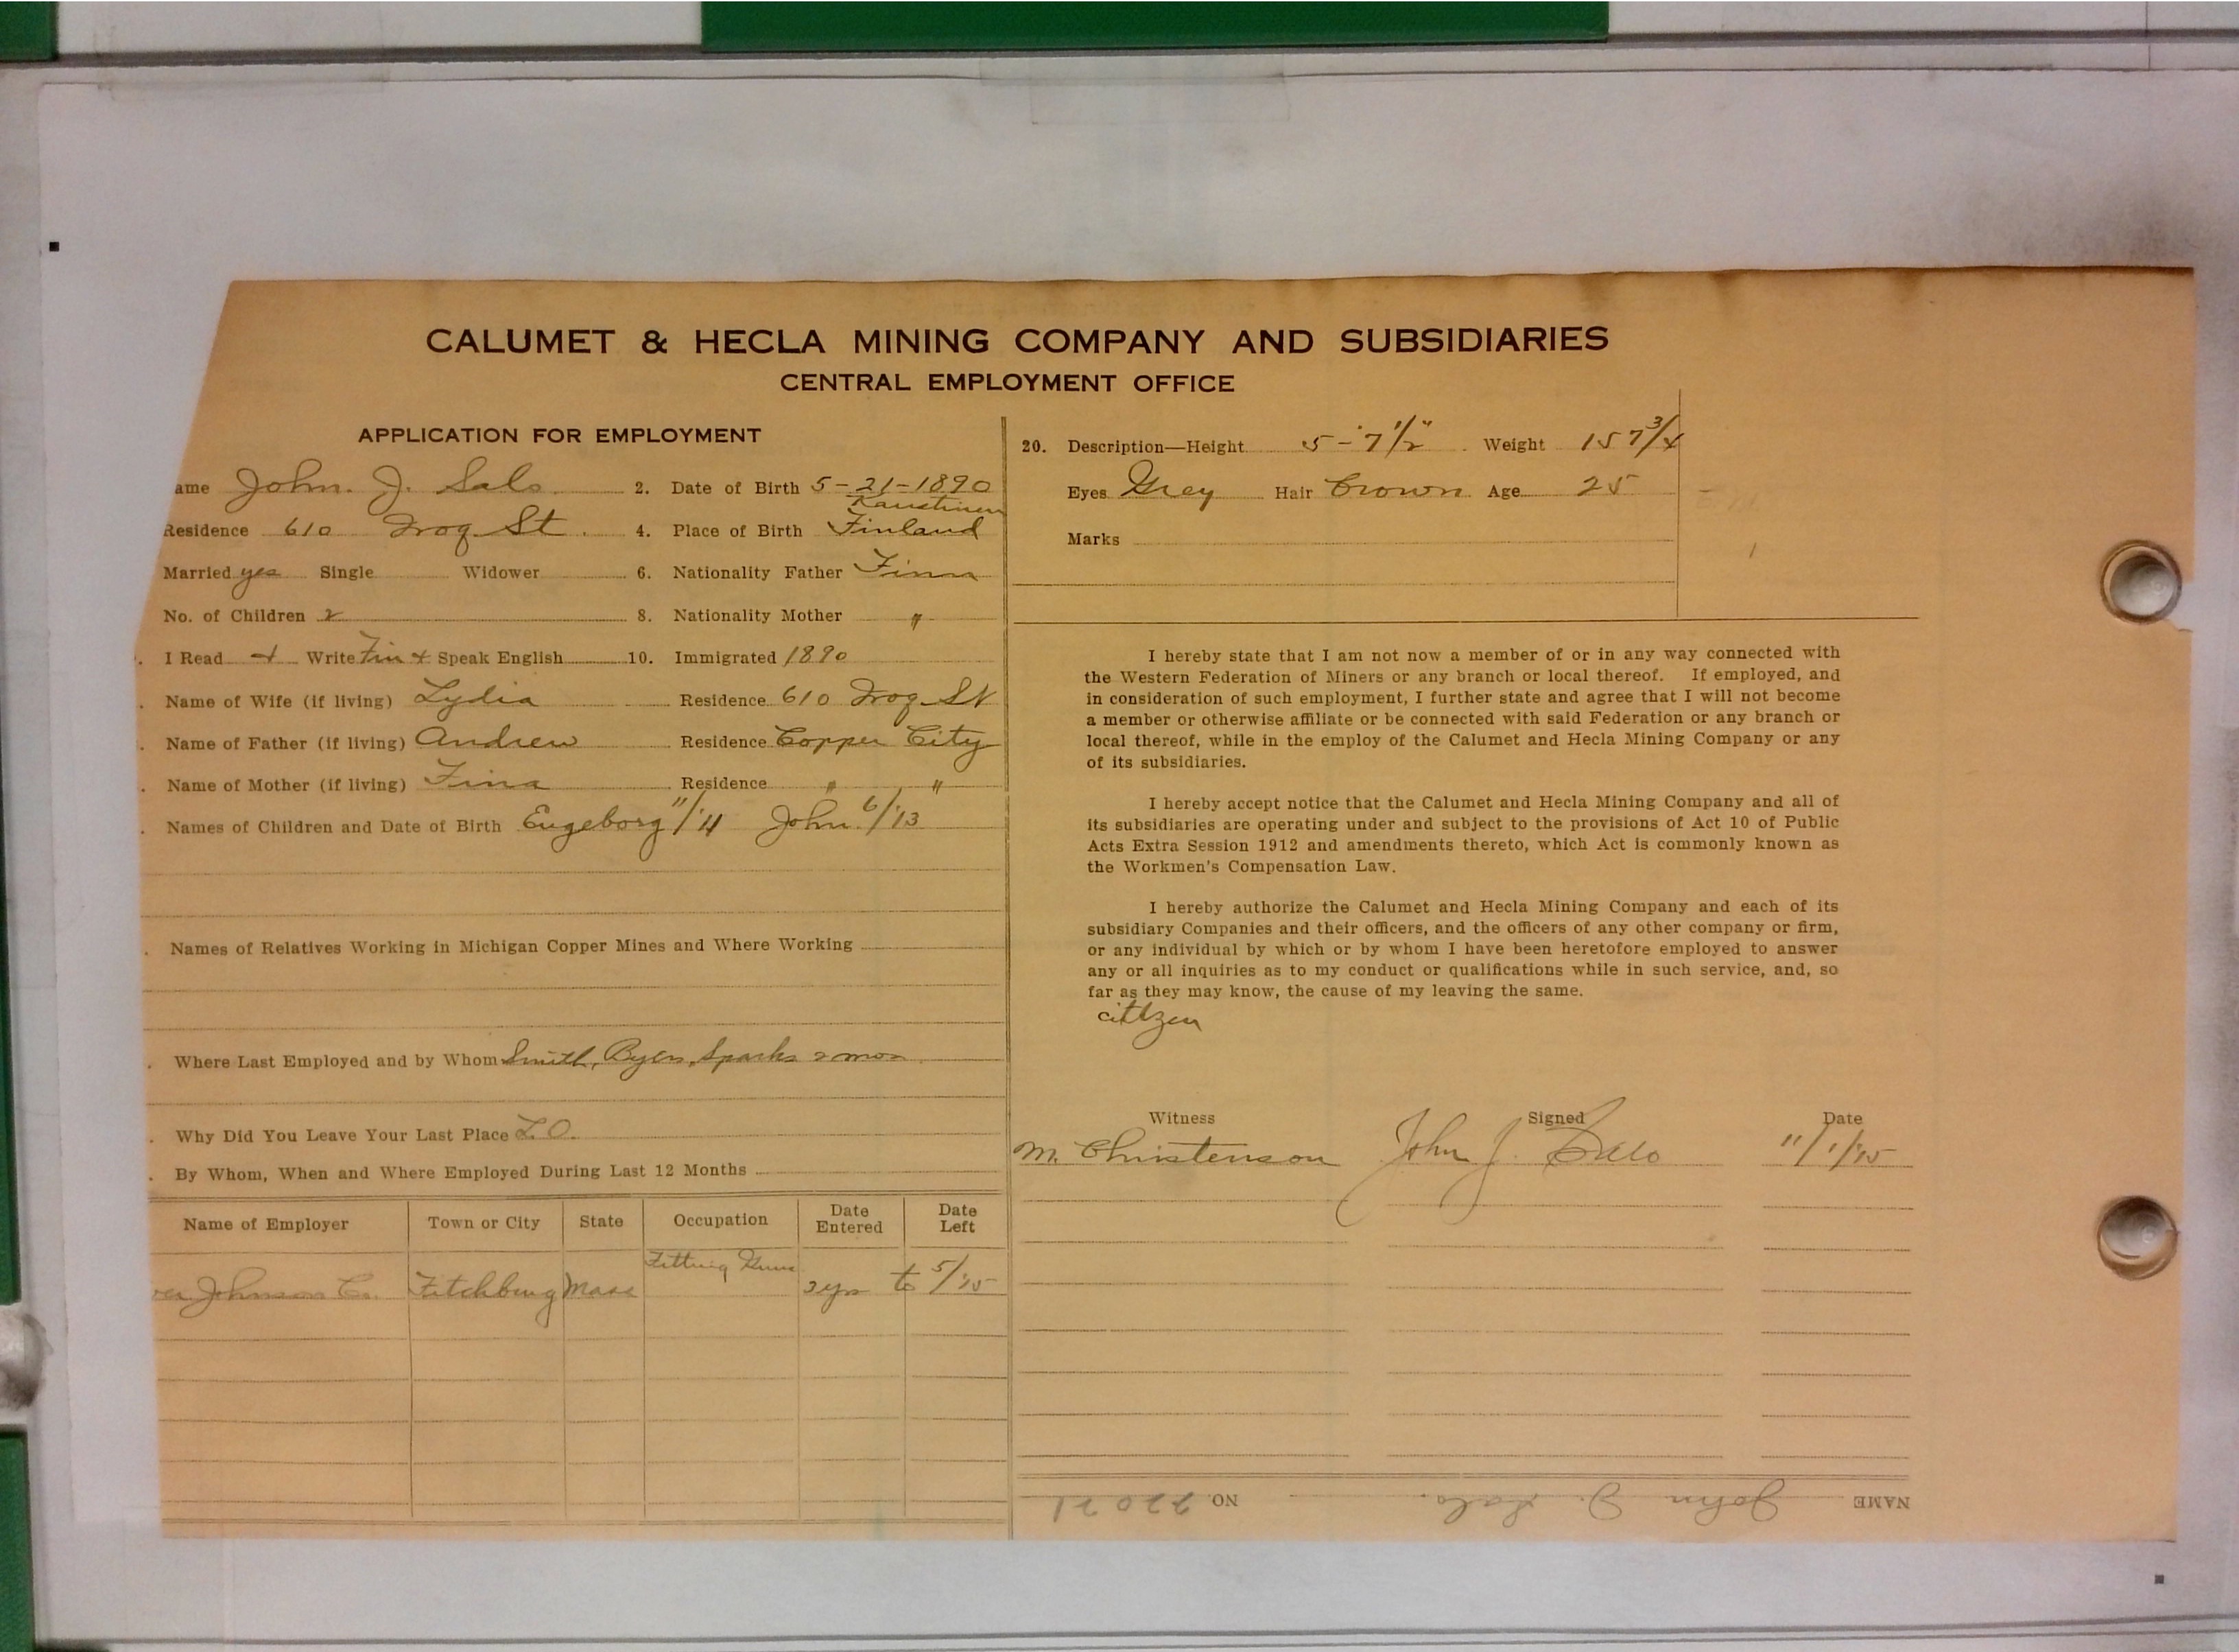 CALUMET & HECLA MINING COMPANY AND SUBSIDIARIES
CENTRAL EMPLOYMENT OFFICE
APPLICATION FOR EMPLOYMENT
ame John. J. Salo 2. Date of Birth 5-21-1890
Kaustinen
Residence 610 Frog St. 4. Place of Birth Finland
Married yes Single Widower 6. Nationality Father Finn
No. of Children 2 8. Nationality Mother "
. I Read + Write Fin + Speak English 10. Immigrated 1890
. Name of Wife (if living) Lydia Residence 610 Frog St
. Name of Father (if living) Andrew Residence Copper City
. Name of Mother (if living) Fina Residence " "
. Names of Children and Date of Birth Engeborg 11/'11 John 6/'13
. Names of Relatives Working in Michigan Copper Mines and Where Working
. Where Last Employed and by Whom Smith, Byers, Sparks 2 mos
. Why Did You Leave Your Last Place L.O.
. By Whom, When and Where Employed During Last 12 Months
Name of Employer Town or City State Occupation Date Entered Date Left
ver Johnson Co. Fitchburg Mass Fitting Guns 2 yrs to 5/'15
20. Description—Height 5-'7 1/2" Weight 157 3/4
Eyes Grey Hair Brown Age 25
Marks
I hereby state that I am not now a member of or in any way connected with
the Western Federation of Miners or any branch or local thereof. If employed, and
in consideration of such employment, I further state and agree that I will not become
a member or otherwise affiliate or be connected with said Federation or any branch or
local thereof, while in the employ of the Calumet and Hecla Mining Company or any
of its subsidiaries.
I hereby accept notice that the Calumet and Hecla Mining Company and all of
its subsidiaries are operating under and subject to the provisions of Act 10 of Public
Acts Extra Session 1912 and amendments thereto, which Act is commonly known as
the Workmen's Compensation Law.
I hereby authorize the Calumet and Hecla Mining Company and each of its
subsidiary Companies and their officers, and the officers of any other company or firm,
or any individual by which or by whom I have been heretofore employed to answer
any or all inquiries as to my conduct or qualifications while in such service, and, so
far as they may know, the cause of my leaving the same.
citizen
Witness Signed Date
M. Christenson John J. Salo 11/1/'15
NAME John J. Salo. NO. 22021